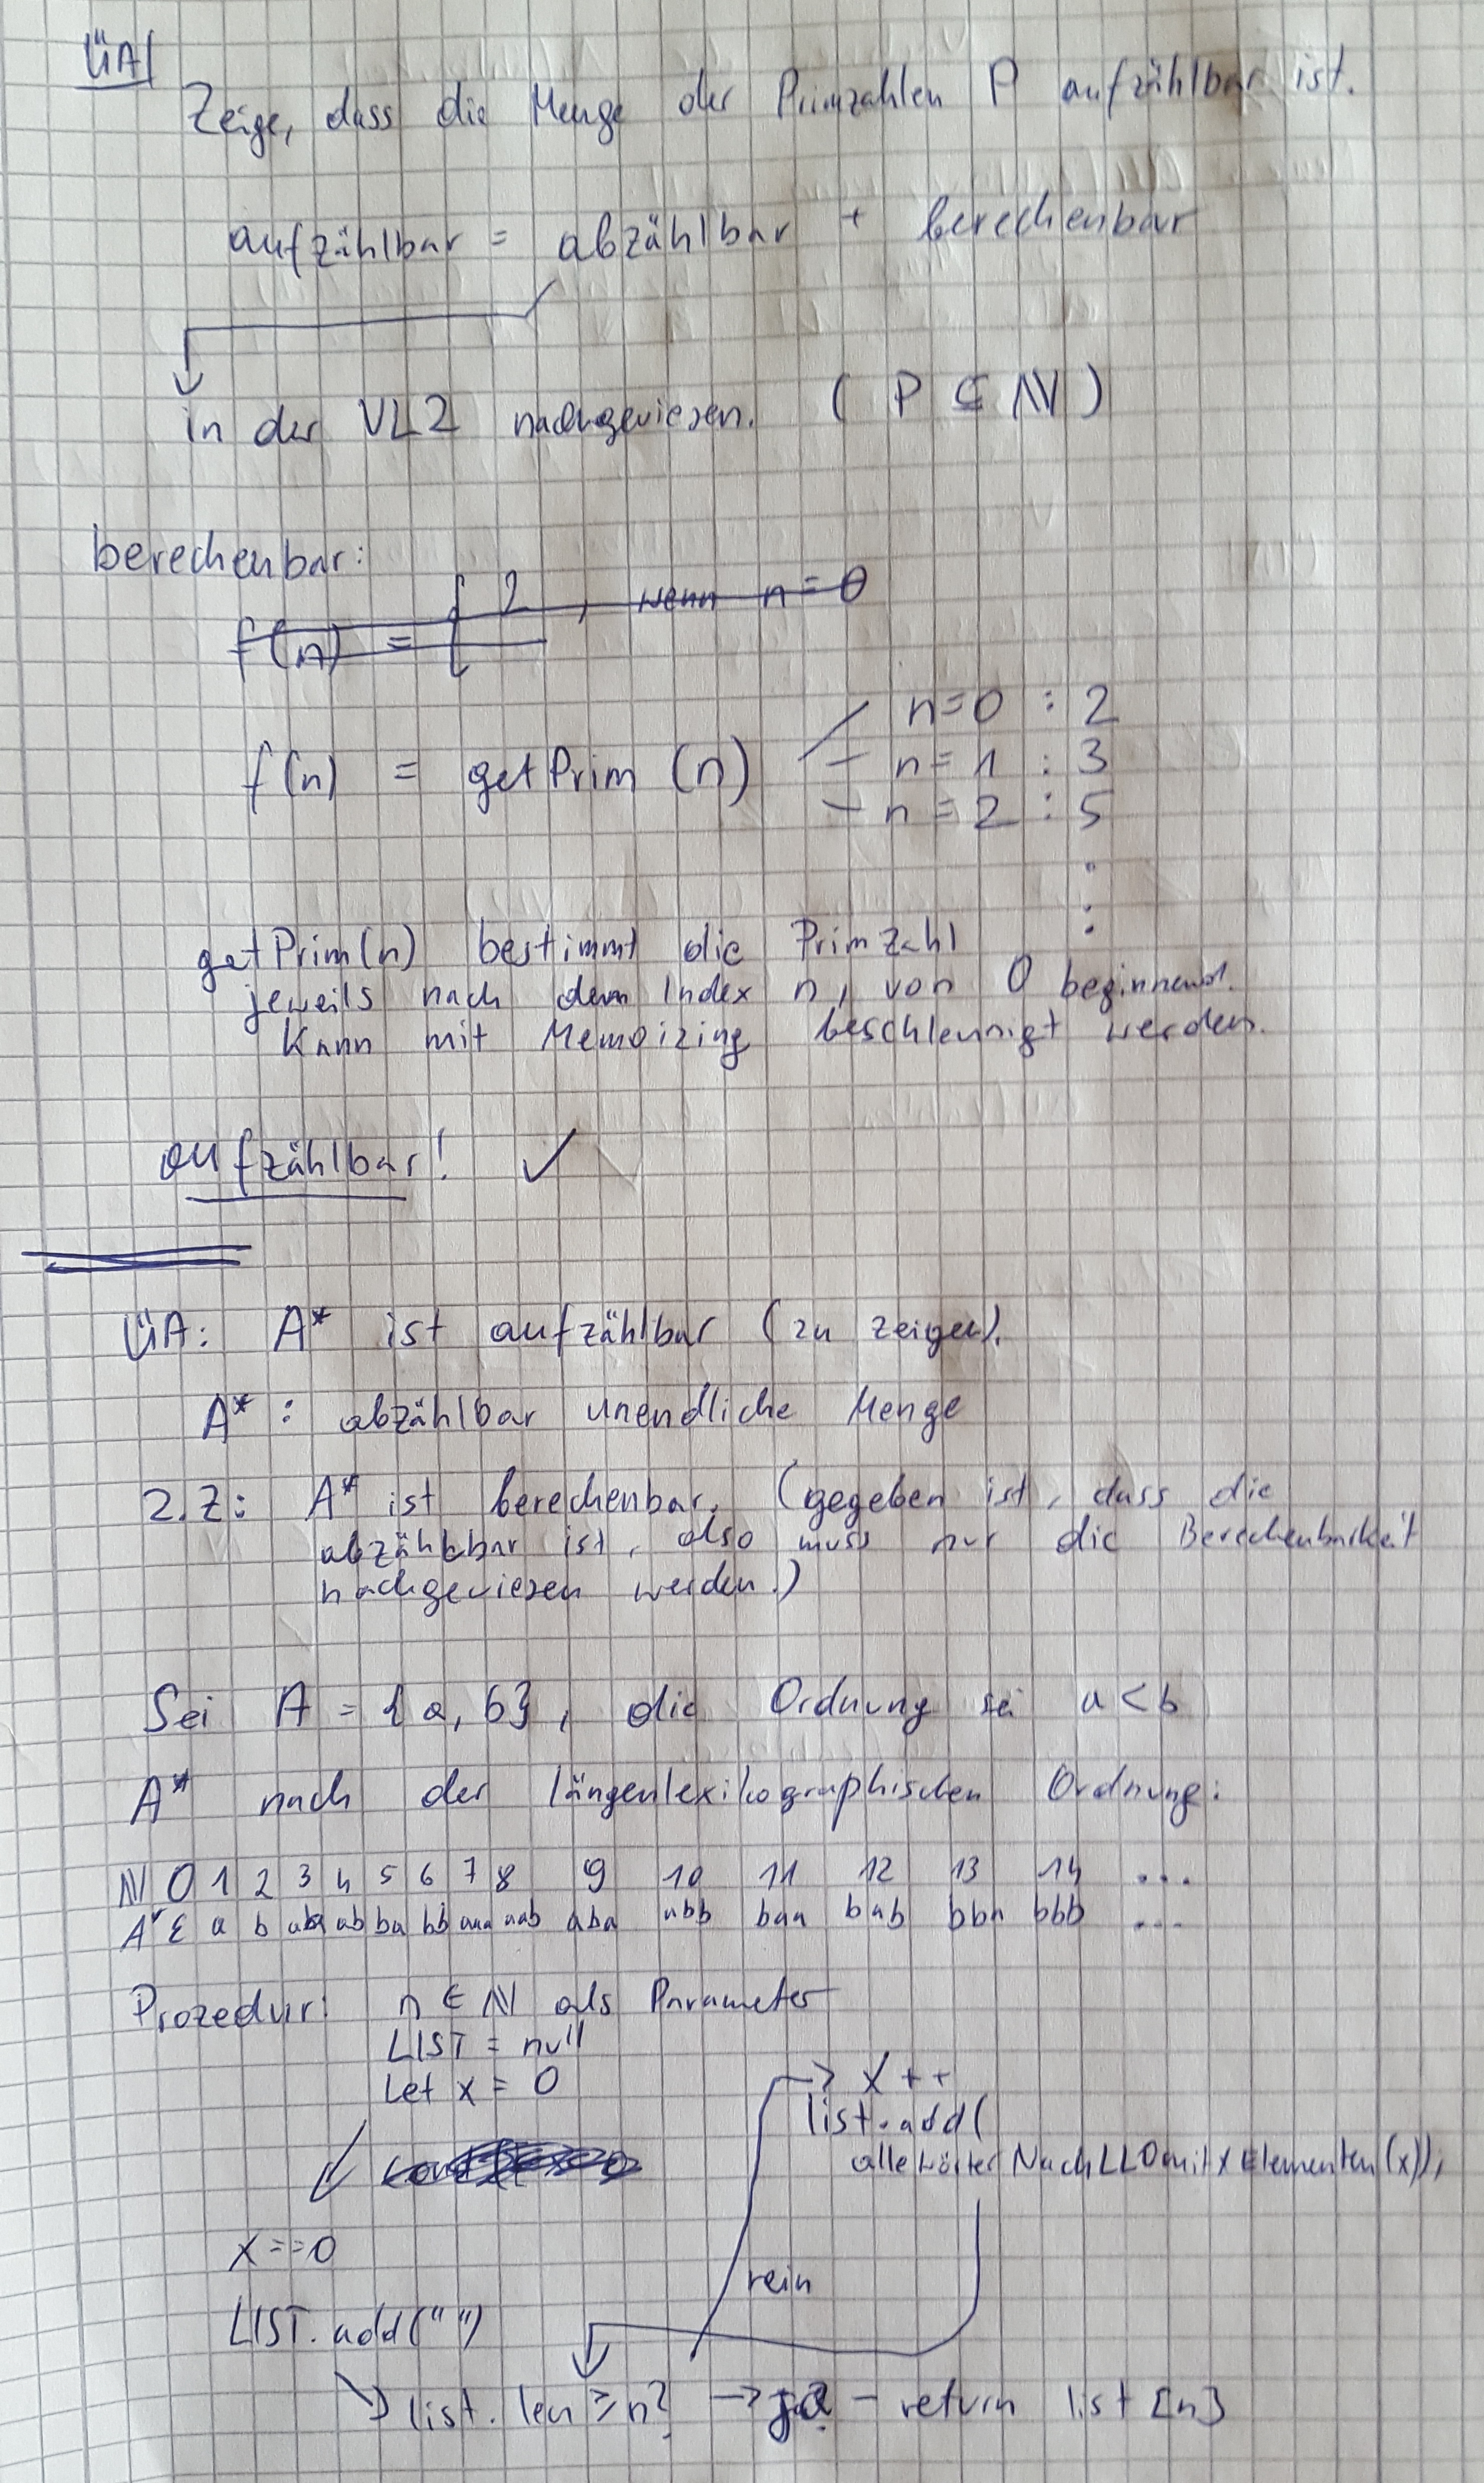 ÜA
Zeige, dass die Menge der Primzahlen P aufzählbar ist.
aufzählbar = abzählbar + berechenbar
in der VL2 nachgewiesen. (P ⊆ ℕ)
berechenbar:
f(n) = { 2 , wenn n = 0
f(n) = getPrim (n)
n=0 : 2
n=1 : 3
n=2 : 5
getPrim(n) bestimmt die Primzahl
jeweils nach dem Index n, von 0 beginnend.
Kann mit Memoizing beschleunigt werden.
aufzählbar! ✓
ÜA: A* ist aufzählbar (zu zeigen).
A* : abzählbar unendliche Menge
z.Z: A* ist berechenbar. (gegeben ist, dass die
abzählbar ist, also muss nur die Berechenbarkeit
nachgewiesen werden.)
Sei A = {a, b}, die Ordnung sei a < b
A* nach der längenlexikographischen Ordnung:
ℕ 0 1 2 3 4 5 6 7 8 9 10 11 12 13 14 ...
A* ε a b aa ab ba bb aaa aab aba abb baa bab bba bbb ...
Prozedur: n ∈ ℕ als Parameter
LIST = null
Let x = 0
→ x++
list.add(
alleWörterNachLLOmitxElementen(x));
x==0
LIST.add("")
rein
list.len ≥ n? → ja? – return list[n]